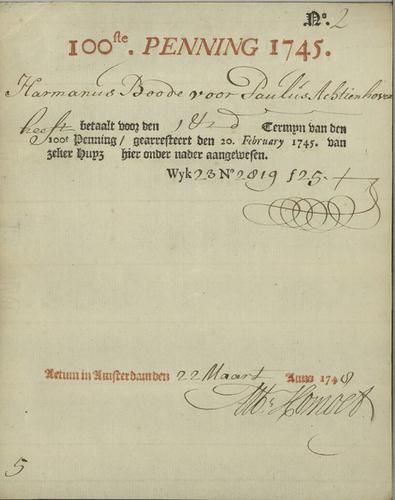 No. 2
100ste. PENNING 1745.
Harmanus Boode voor Paulus Achtienhoven
heeft betaalt voor den 1 & 2d Termyn van den
100e Penning / gearresteert den 20. February 1745. van
zeker Huyz hier onder nader aangewesen.
Wyk 23 No 2819 f 25-
Actum in Amsterdam den 22 Maart Anno 1748
5